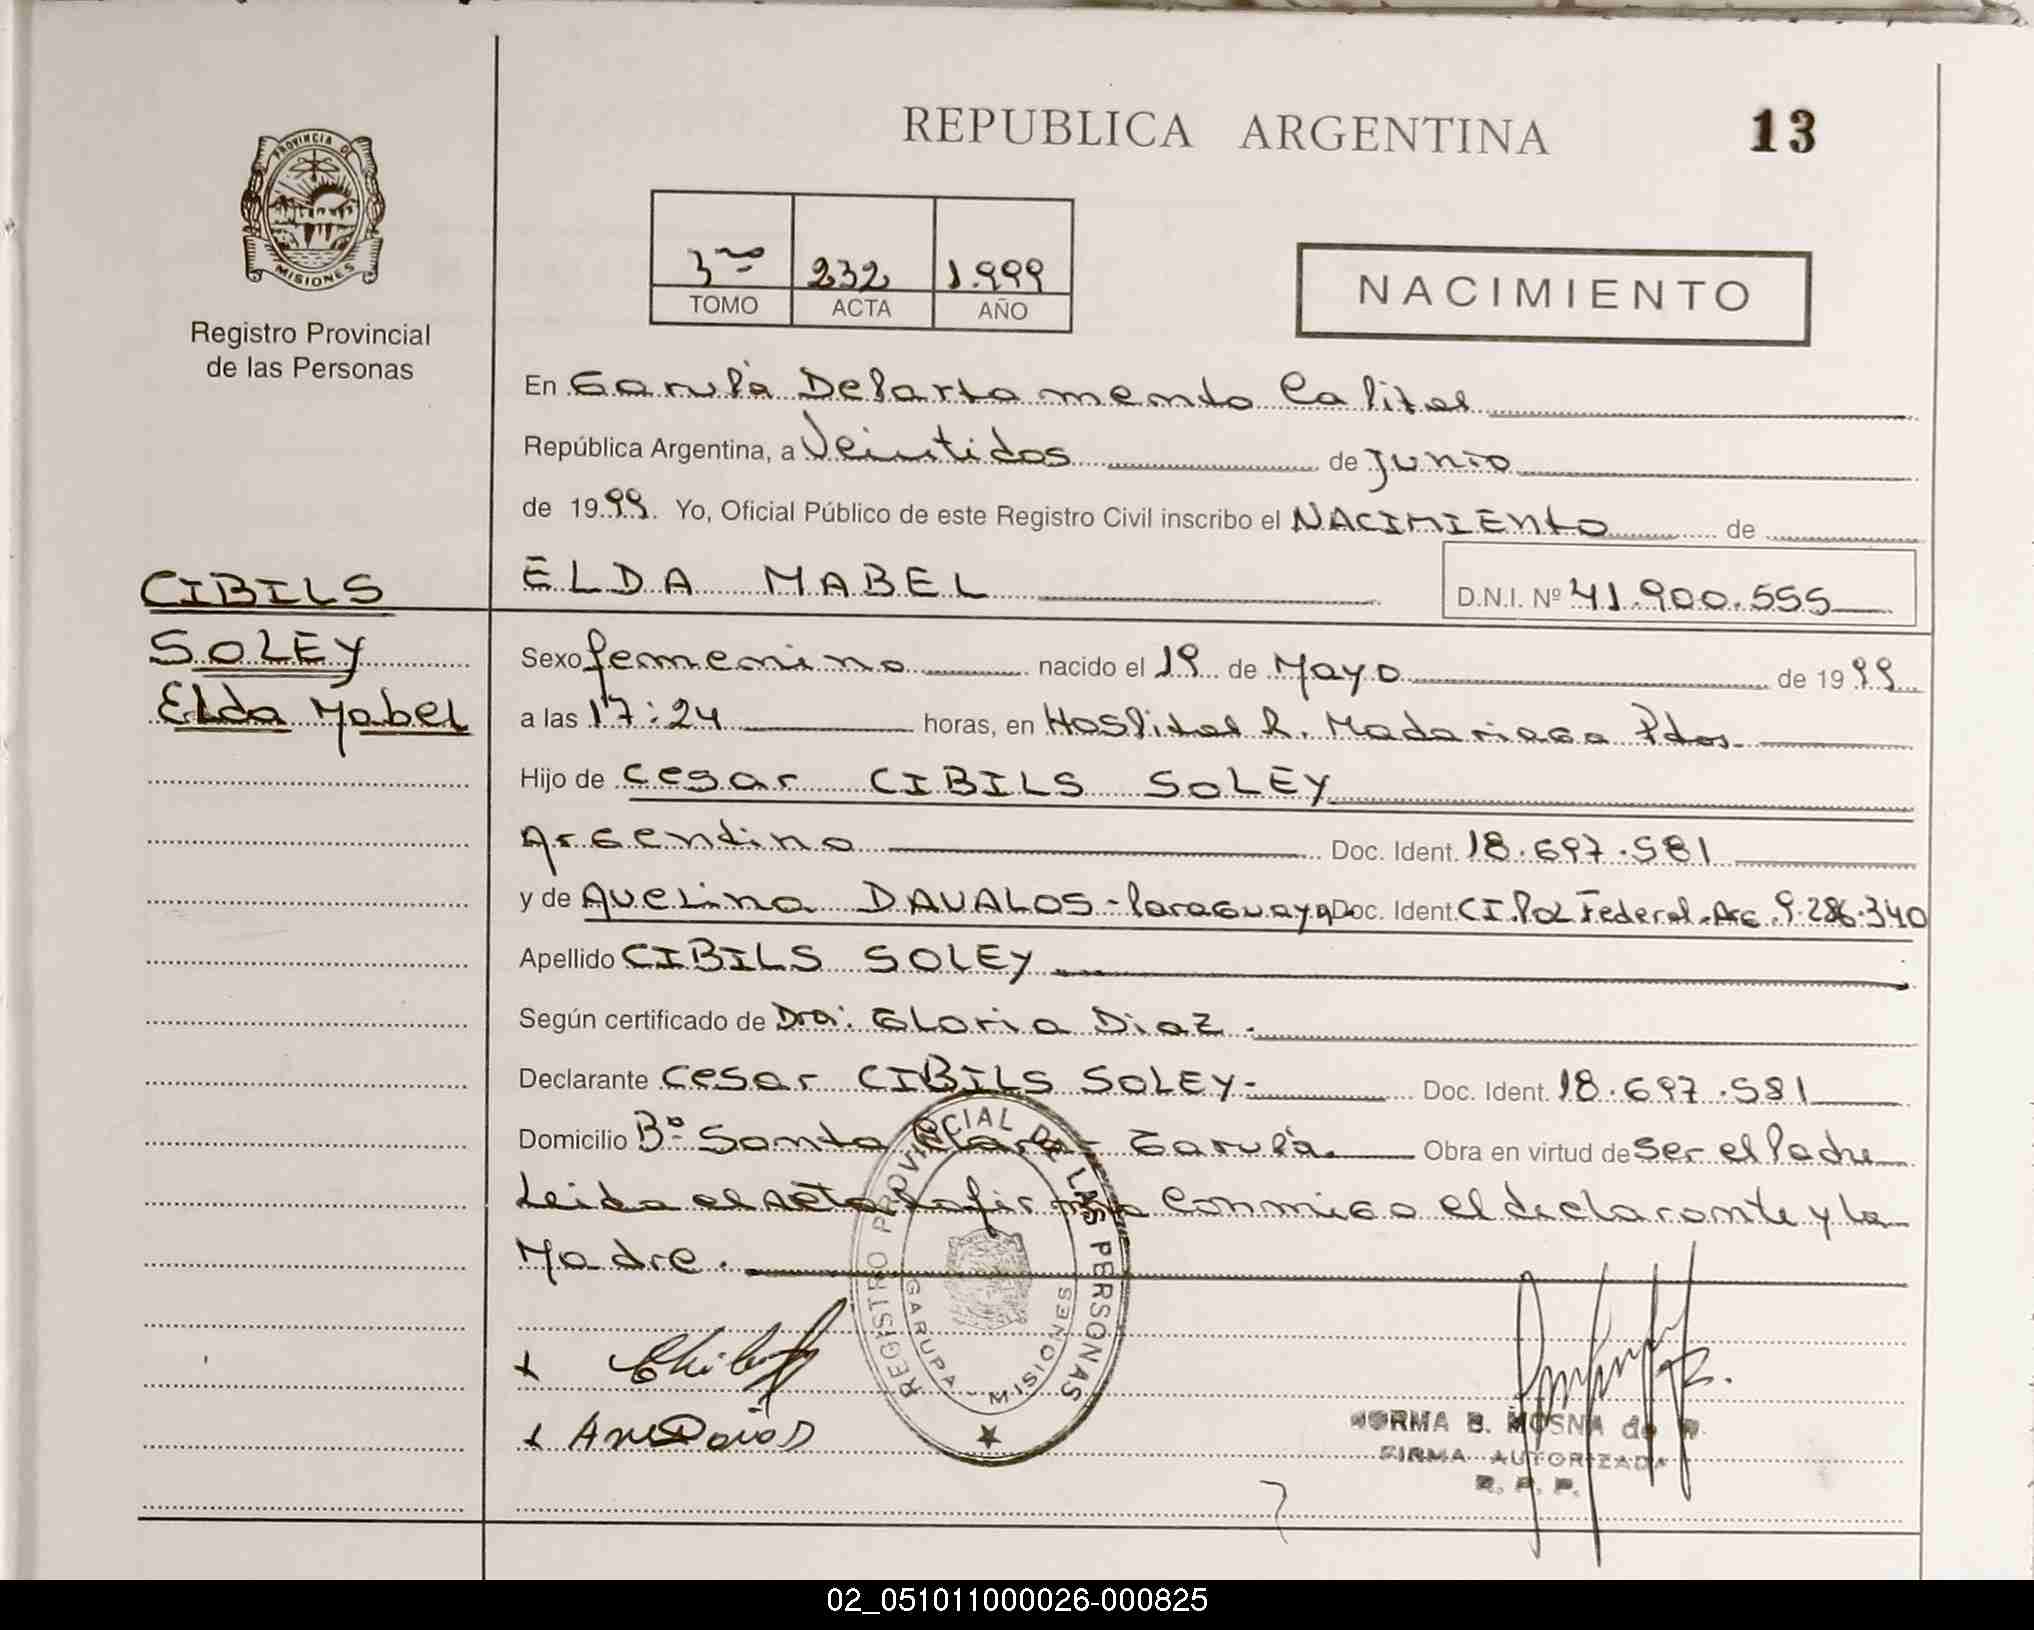 REPUBLICA ARGENTINA
13
PROVINCIA DE
MISIONES
Registro Provincial
de las Personas
3ro 232 1.999
TOMO ACTA AÑO
NACIMIENTO
En Garupá Departamento Capital
República Argentina, a Veintidos de Junio
de 1999. Yo, Oficial Público de este Registro Civil inscribo el NACIMIENto de
ELDA MABEL D.N.I. Nº 41.900.555
CIBILS
SOLEY
Elda Mabel
Sexo femenino nacido el 19 de Mayo de 1999
a las 17:24 horas, en Hospital R. Madariaga Pdas.
Hijo de Cesar CIBILS SOLEY
Argentino Doc. Ident. 18.697.581
y de Avelina DAVALOS - Paraguaya Doc. Ident. CI.Pol Federal.Arg.9.286.340
Apellido CIBILS SOLEY
Según certificado de Dra. Gloria Diaz.
Declarante Cesar CIBILS SOLEY- Doc. Ident. 18.697.581
Domicilio Bº Santa Clara - Garupá. Obra en virtud de ser el Padre
Leida el acta la firma Conmigo el declarante y la
Madre.
REGISTRO PROVINCIAL DE LAS PERSONAS
GARUPA - MISIONES
NORMA B. MOSNA de
FIRMA AUTORIZADA
R. P. P.
02_051011000026-000825